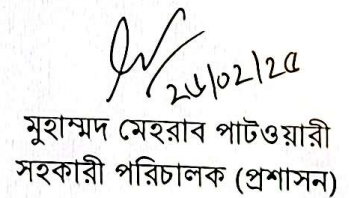 ২৬/০২/২৫
মুহাম্মদ মেহরাব পাটওয়ারী
সহকারী পরিচালক (প্রশাসন)